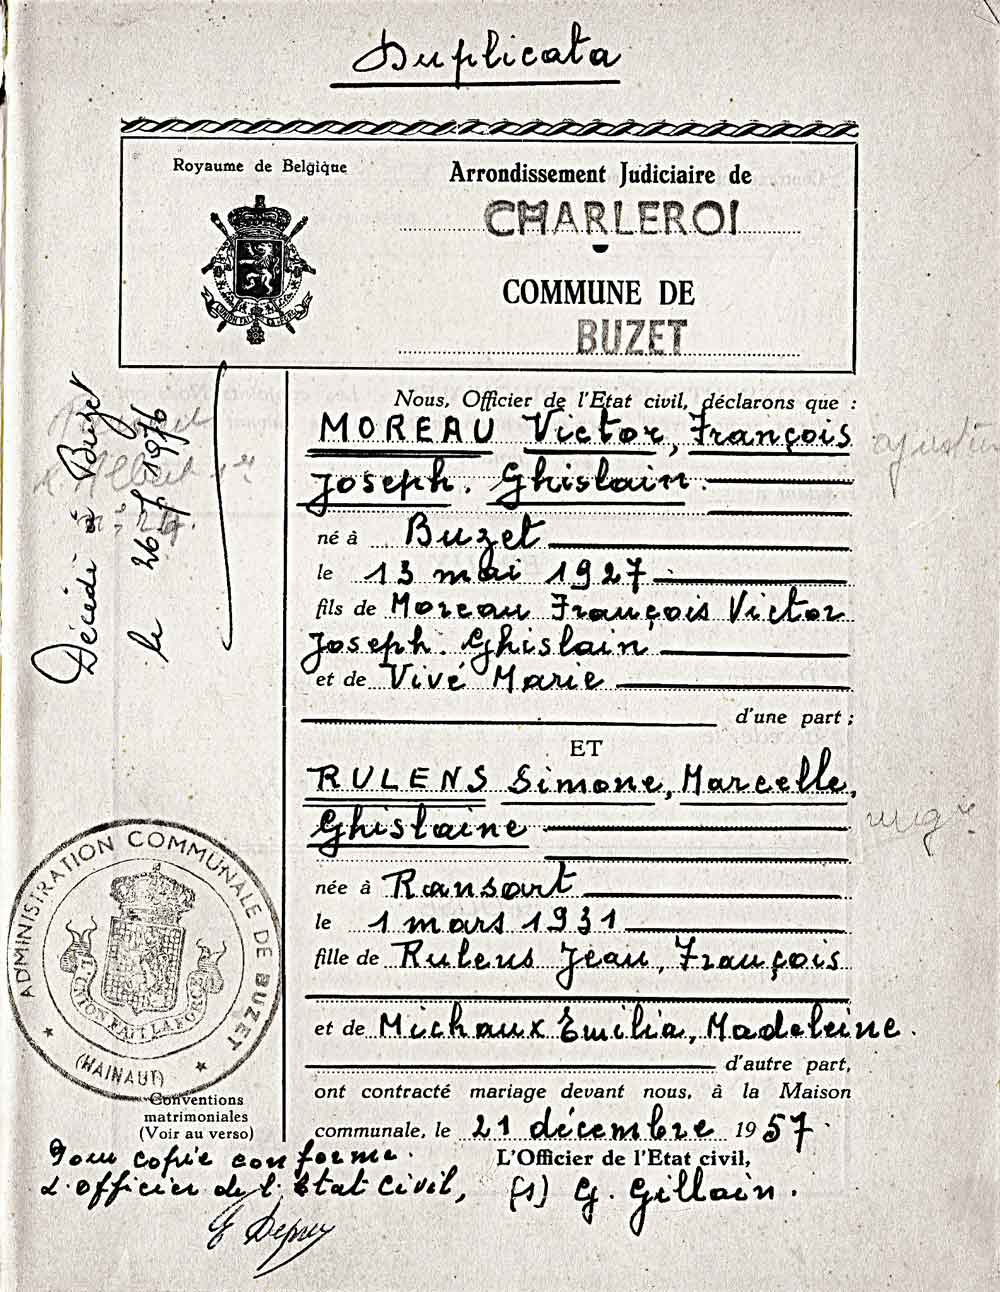 Duplicata
Royaume de Belgique
Arrondissement Judiciaire de
CHARLEROI
COMMUNE DE
BUZET
Décédé à Buzet
le 26-7-1976
Albert 1er
Nous, Officier de l'Etat civil, déclarons que :
MOREAU Victor, François
Joseph. Ghislain.
né à Buzet
le 13 mai 1927
fils de Moreau François Victor
Joseph. Ghislain
et de Vivé Marie
d'une part ;
ET
RULENS Simone, Marcelle,
Ghislaine
née à Ransart
le 1 mars 1931
fille de Rulens Jean, François
et de Michaux Emilia, Madeleine.
d'autre part,
ont contracté mariage devant nous, à la Maison
communale, le 21 décembre 1957.
L'Officier de l'Etat civil,
(s) G. Gillain.
ajusteur
ADMINISTRATION COMMUNALE DE BUZET
L'UNION FAIT LA FORCE
(HAINAUT)
Conventions
matrimoniales
(Voir au verso)
Pour copie conforme.
L'officier de l'Etat Civil,